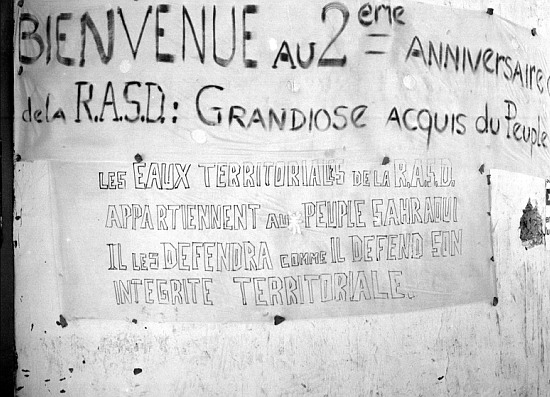 BIENVENUE AU 2ème ANNIVERSAIRE
de la R.A.S.D.: GRANDIOSE ACQUIS du Peuple
LES EAUX TERRITORIALES DE LA R.A.S.D.
APPARTIENNENT AU PEUPLE SAHRAOUI
IL LES DEFENDRA COMME IL DEFEND SON
INTEGRITE TERRITORIALE.